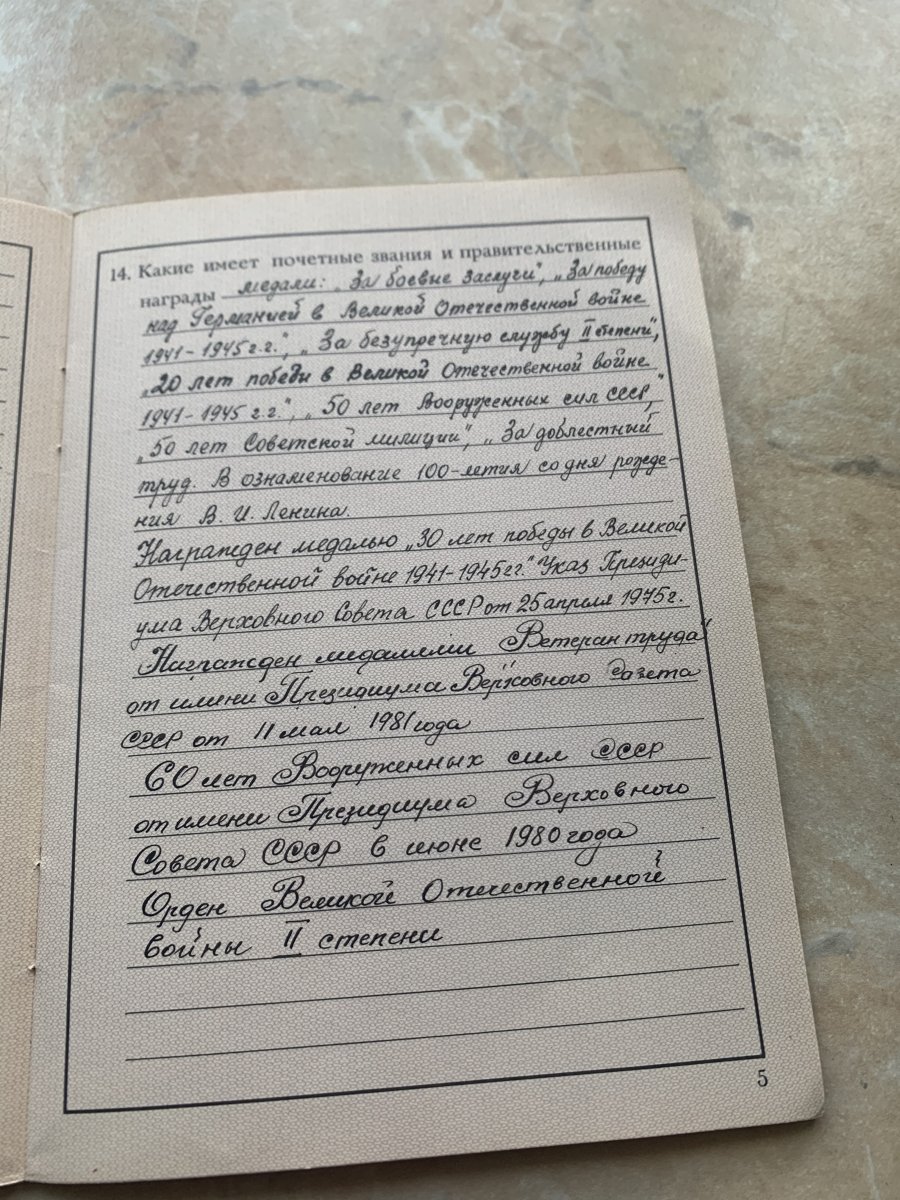 14. Какие имеет почетные звания и правительственные
награды медали: „За боевые заслуги", „За победу
над Германией в Великой Отечественной войне
1941-1945 г.г.", „За безупречную службу II степени",
„20 лет победы в Великой Отечественной войне
1941-1945 г.г.", „50 лет Вооруженных сил СССР",
„50 лет Советской милиции", „За доблестный
труд. В ознаменование 100-летия со дня рожде-
ния В. И. Ленина.
Награжден медалью „30 лет победы в Великой
Отечественной войне 1941-1945 гг." Указ Президи-
ума Верховного Совета СССР от 25 апреля 1975 г.
Награжден медалями „Ветеран труда"
от имени Президиума Верховного
СССР от 11 мая 1981 года
60 лет Вооруженных сил СССР
от имени Президиума Верховного
Совета СССР в июне 1980 года
Орден Великой Отечественной
войны II степени
5